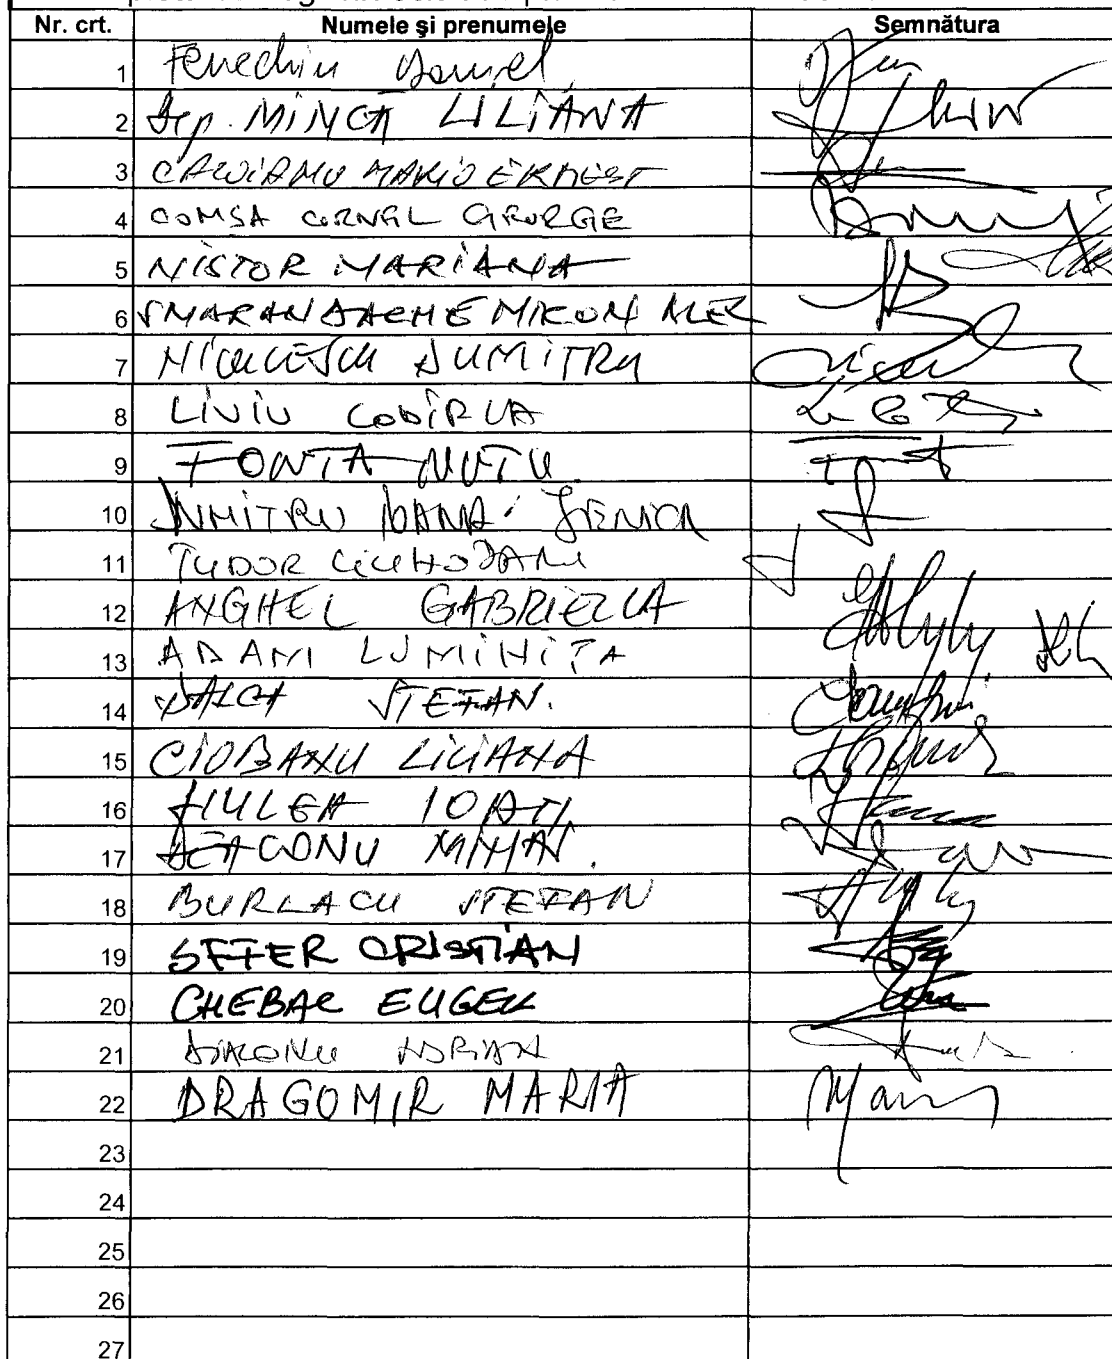 Nr. crt. Numele şi prenumele Semnătura
1 Fenechiu Daniel
2 Dep. MINCĂ LILIANA
3 CALOIANU MARIO ERNEST
4 COMSA CORNEL GEORGE
5 NISTOR MARIANA
6 SMARANDACHE MIRON ALEX
7 NICULESCU DUMITRU
8 LIVIU CODÎRLA
9 FONTA NUTU
10 DUMITRU OANA
11 TUDOR CIUHODARU
12 ANGHEL GABRIELLA
13 ADAM LUMINIȚA
14 DALCA STEFAN.
15 CIOBANU LILIANA
16 HULEA IOAN
17 DEACONU MIHAI.
18 BURLACU STEFAN
19 SEFER CRISTIAN
20 CHEBAC EUGEN
21 DIACONU ADRIAN
22 DRAGOMIR MARIA
23
24
25
26
27